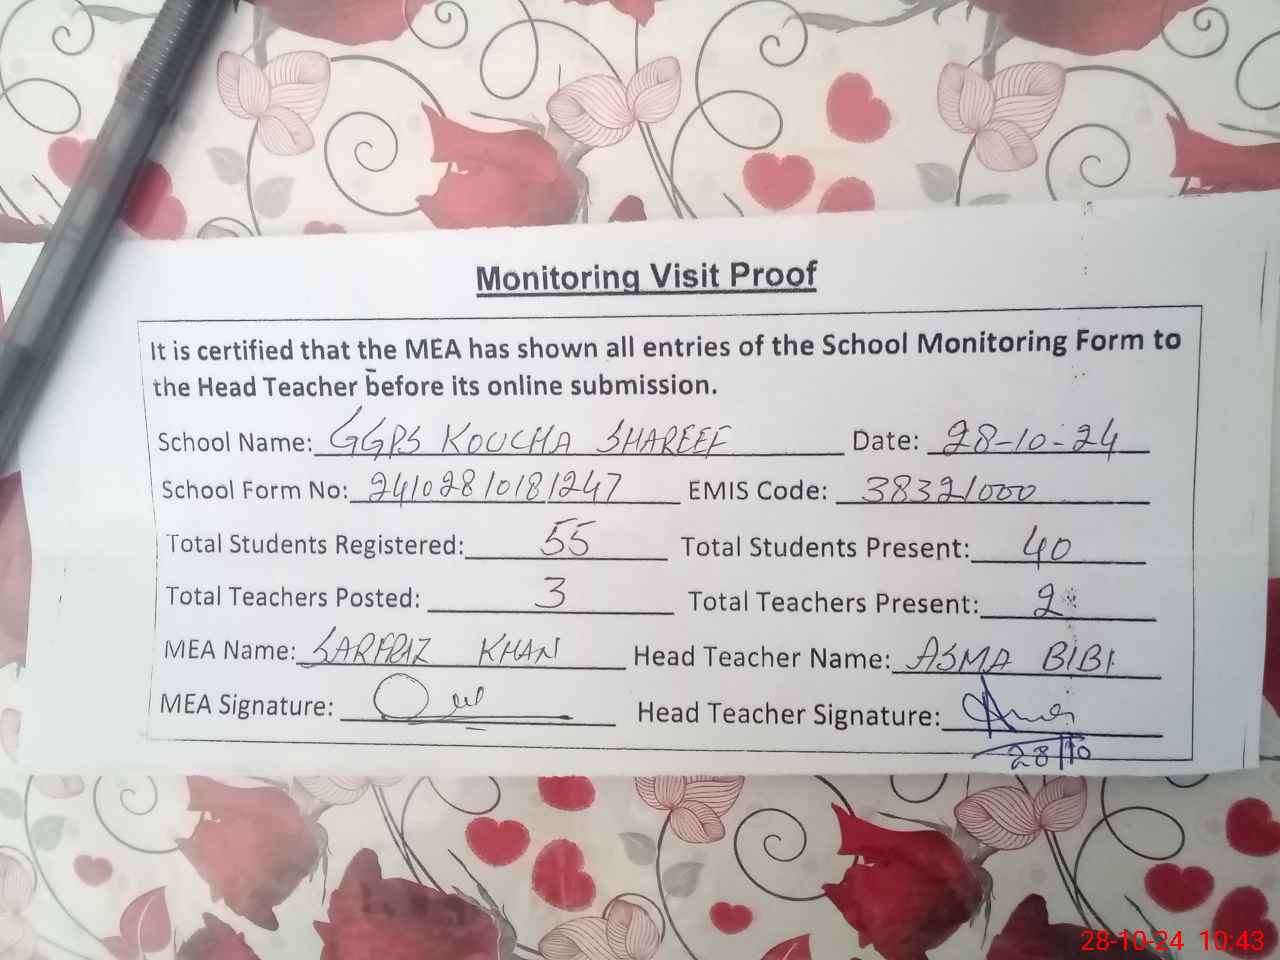 Monitoring Visit Proof
It is certified that the MEA has shown all entries of the School Monitoring Form to
the Head Teacher before its online submission.
School Name: GGPS KOUCHA SHAREEF Date: 28-10-24
School Form No: 24102810181247 EMIS Code: 38321000
Total Students Registered: 55 Total Students Present: 40
Total Teachers Posted: 3 Total Teachers Present: 2
MEA Name: SARFRAZ KHAN Head Teacher Name: ASMA BIBI
MEA Signature: Head Teacher Signature:
28/10
28-10-24 10:43